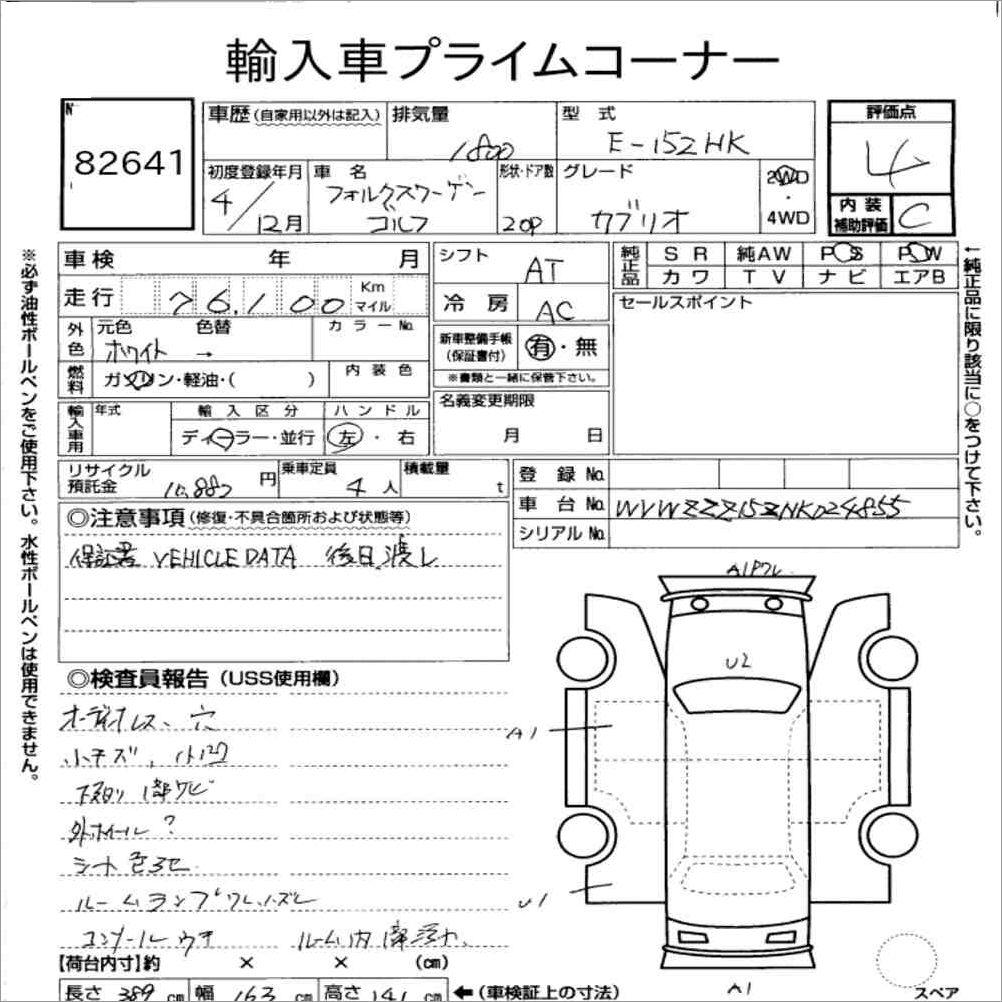 輸入車プライムコーナー
No 82641
車歴（自家用以外は記入） 排気量 1800 型式 E-15ZHK 評価点 4
初度登録年月 4/12月 車名 フォルクスワーゲン ゴルフ 形状・ドア数 2OP グレード カブリオ 2WD・4WD 内装補助評価 C
※必ず油性ボールペンをご使用下さい。水性ボールペンは使用できません。
車検 年 月
走行 76,100 Km マイル
外色 元色 ホワイト 色替 → カラーNo.
燃料 ガソリン・軽油・( ) 内装色
輸入車用 年式 輸入区分 ディーラー・並行 ハンドル 左・右
シフト AT
冷房 AC
新車整備手帳（保証書付） 有・無
※書類と一緒に保管下さい。
名義変更期限 月 日
純正品 SR 純AW PS PW
カワ TV ナビ エアB
セールスポイント
←純正品に限り該当に○をつけて下さい。
リサイクル預託金 10,880 円 乗車定員 4人 積載量 t
登録No.
車台No. WVWZZZ15ZNK024855
シリアルNo.
◎注意事項（修復・不具合箇所および状態等）
保証書 VEHICLE DATA 後日渡し
◎検査員報告（USS使用欄）
オーディオレス、穴
小キズ、小凹
下廻り1部サビ
外ホイール?
シート色あせ
ルームランプワレ
コンソールウキ ルーム内
A1ワレ
U2
A1
U1
A1
スペア
【荷台内寸】約 × × (cm)
長さ 389 cm 幅 163 cm 高さ 141 cm ←（車検証上の寸法）